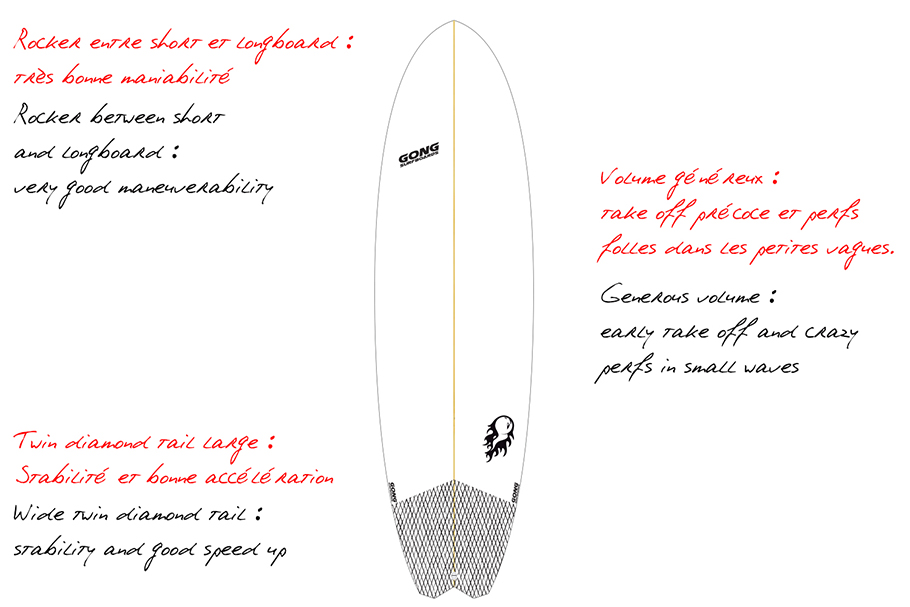 Rocker entre short et longboard :
très bonne maniabilité
Rocker between short
and longboard :
very good maneuverability
GONG
SURFBOARDS
Volume généreux :
take off précoce et perfs
folles dans les petites vagues.
Generous volume :
early take off and crazy
perfs in small waves
Twin diamond tail large :
Stabilité et bonne accélération
Wide twin diamond tail :
stability and good speed up
GONG
GONG